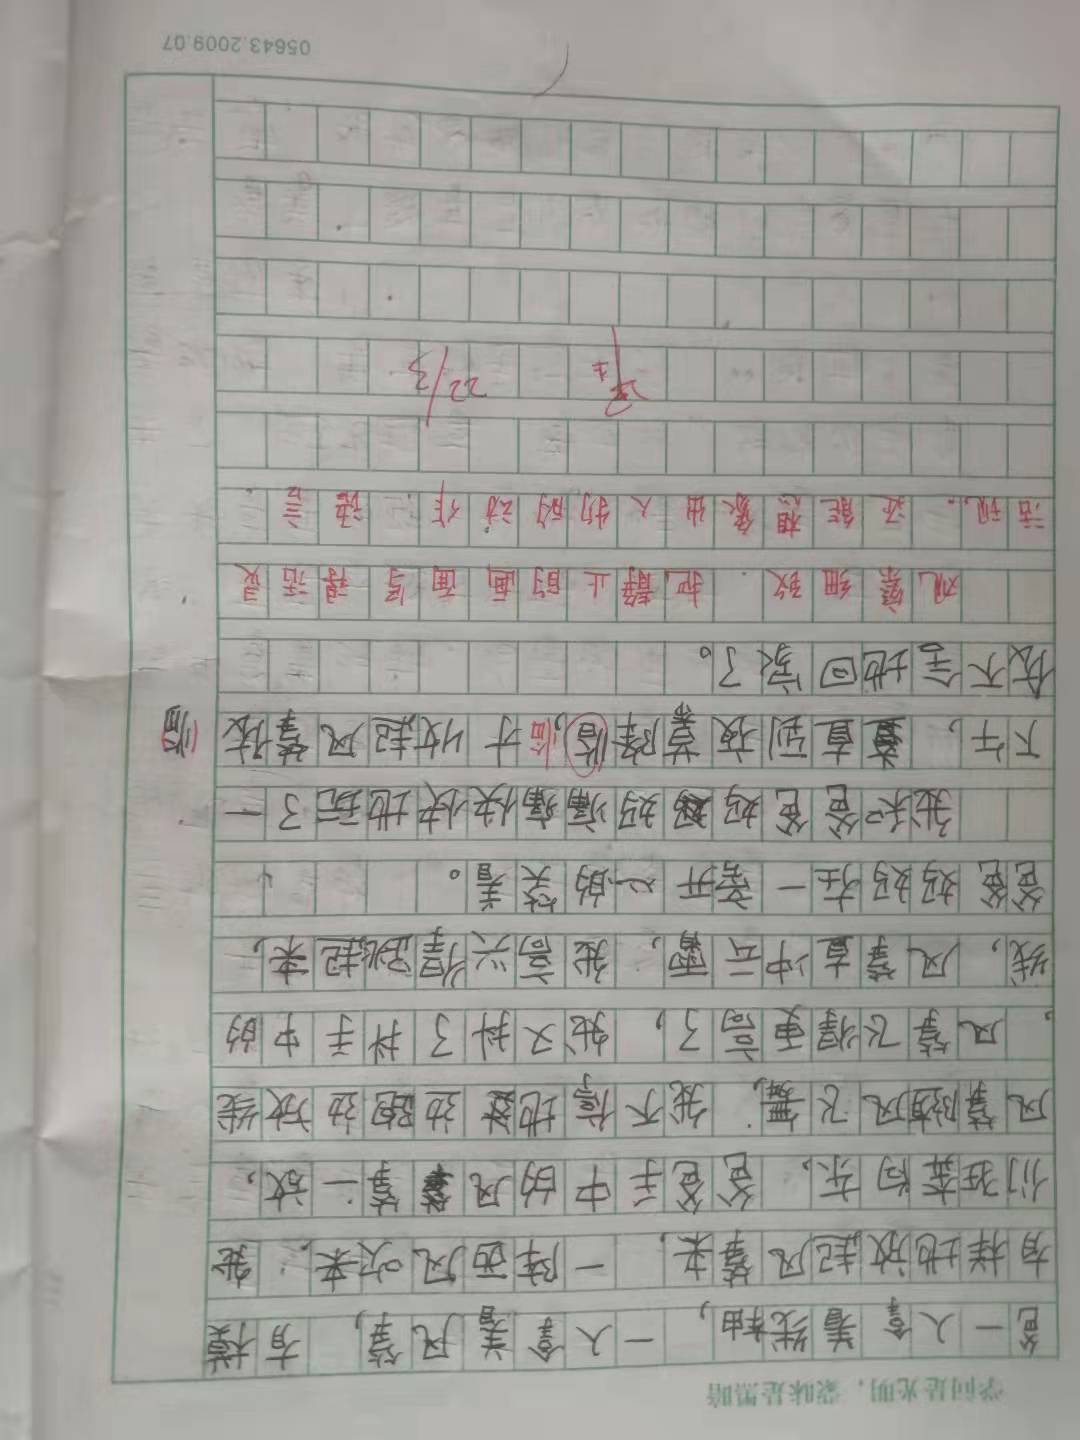 学问是光明，蒙味是黑暗
爸一人拿着线轴，一人拿着风筝，有模
有样地放起风筝来，一阵西风吹来，我
们狂奔向东，爸爸手中的风筝一放，
风筝随风飞舞，我不停地边跑边放线
，风筝飞得更高了，我又抖了抖手中的
线，风筝直冲云霄，我高兴得跳起来，
爸爸妈妈在一旁开心的笑着。
我和爸爸妈妈痛痛快快地玩了一
下午，直到夜幕降临，才收起风筝依
依不舍地回家了。
临
观察细致，把静止的画面写得活灵
活现。还能想象出人物的动作、语言。
22/3
05643.2009.07